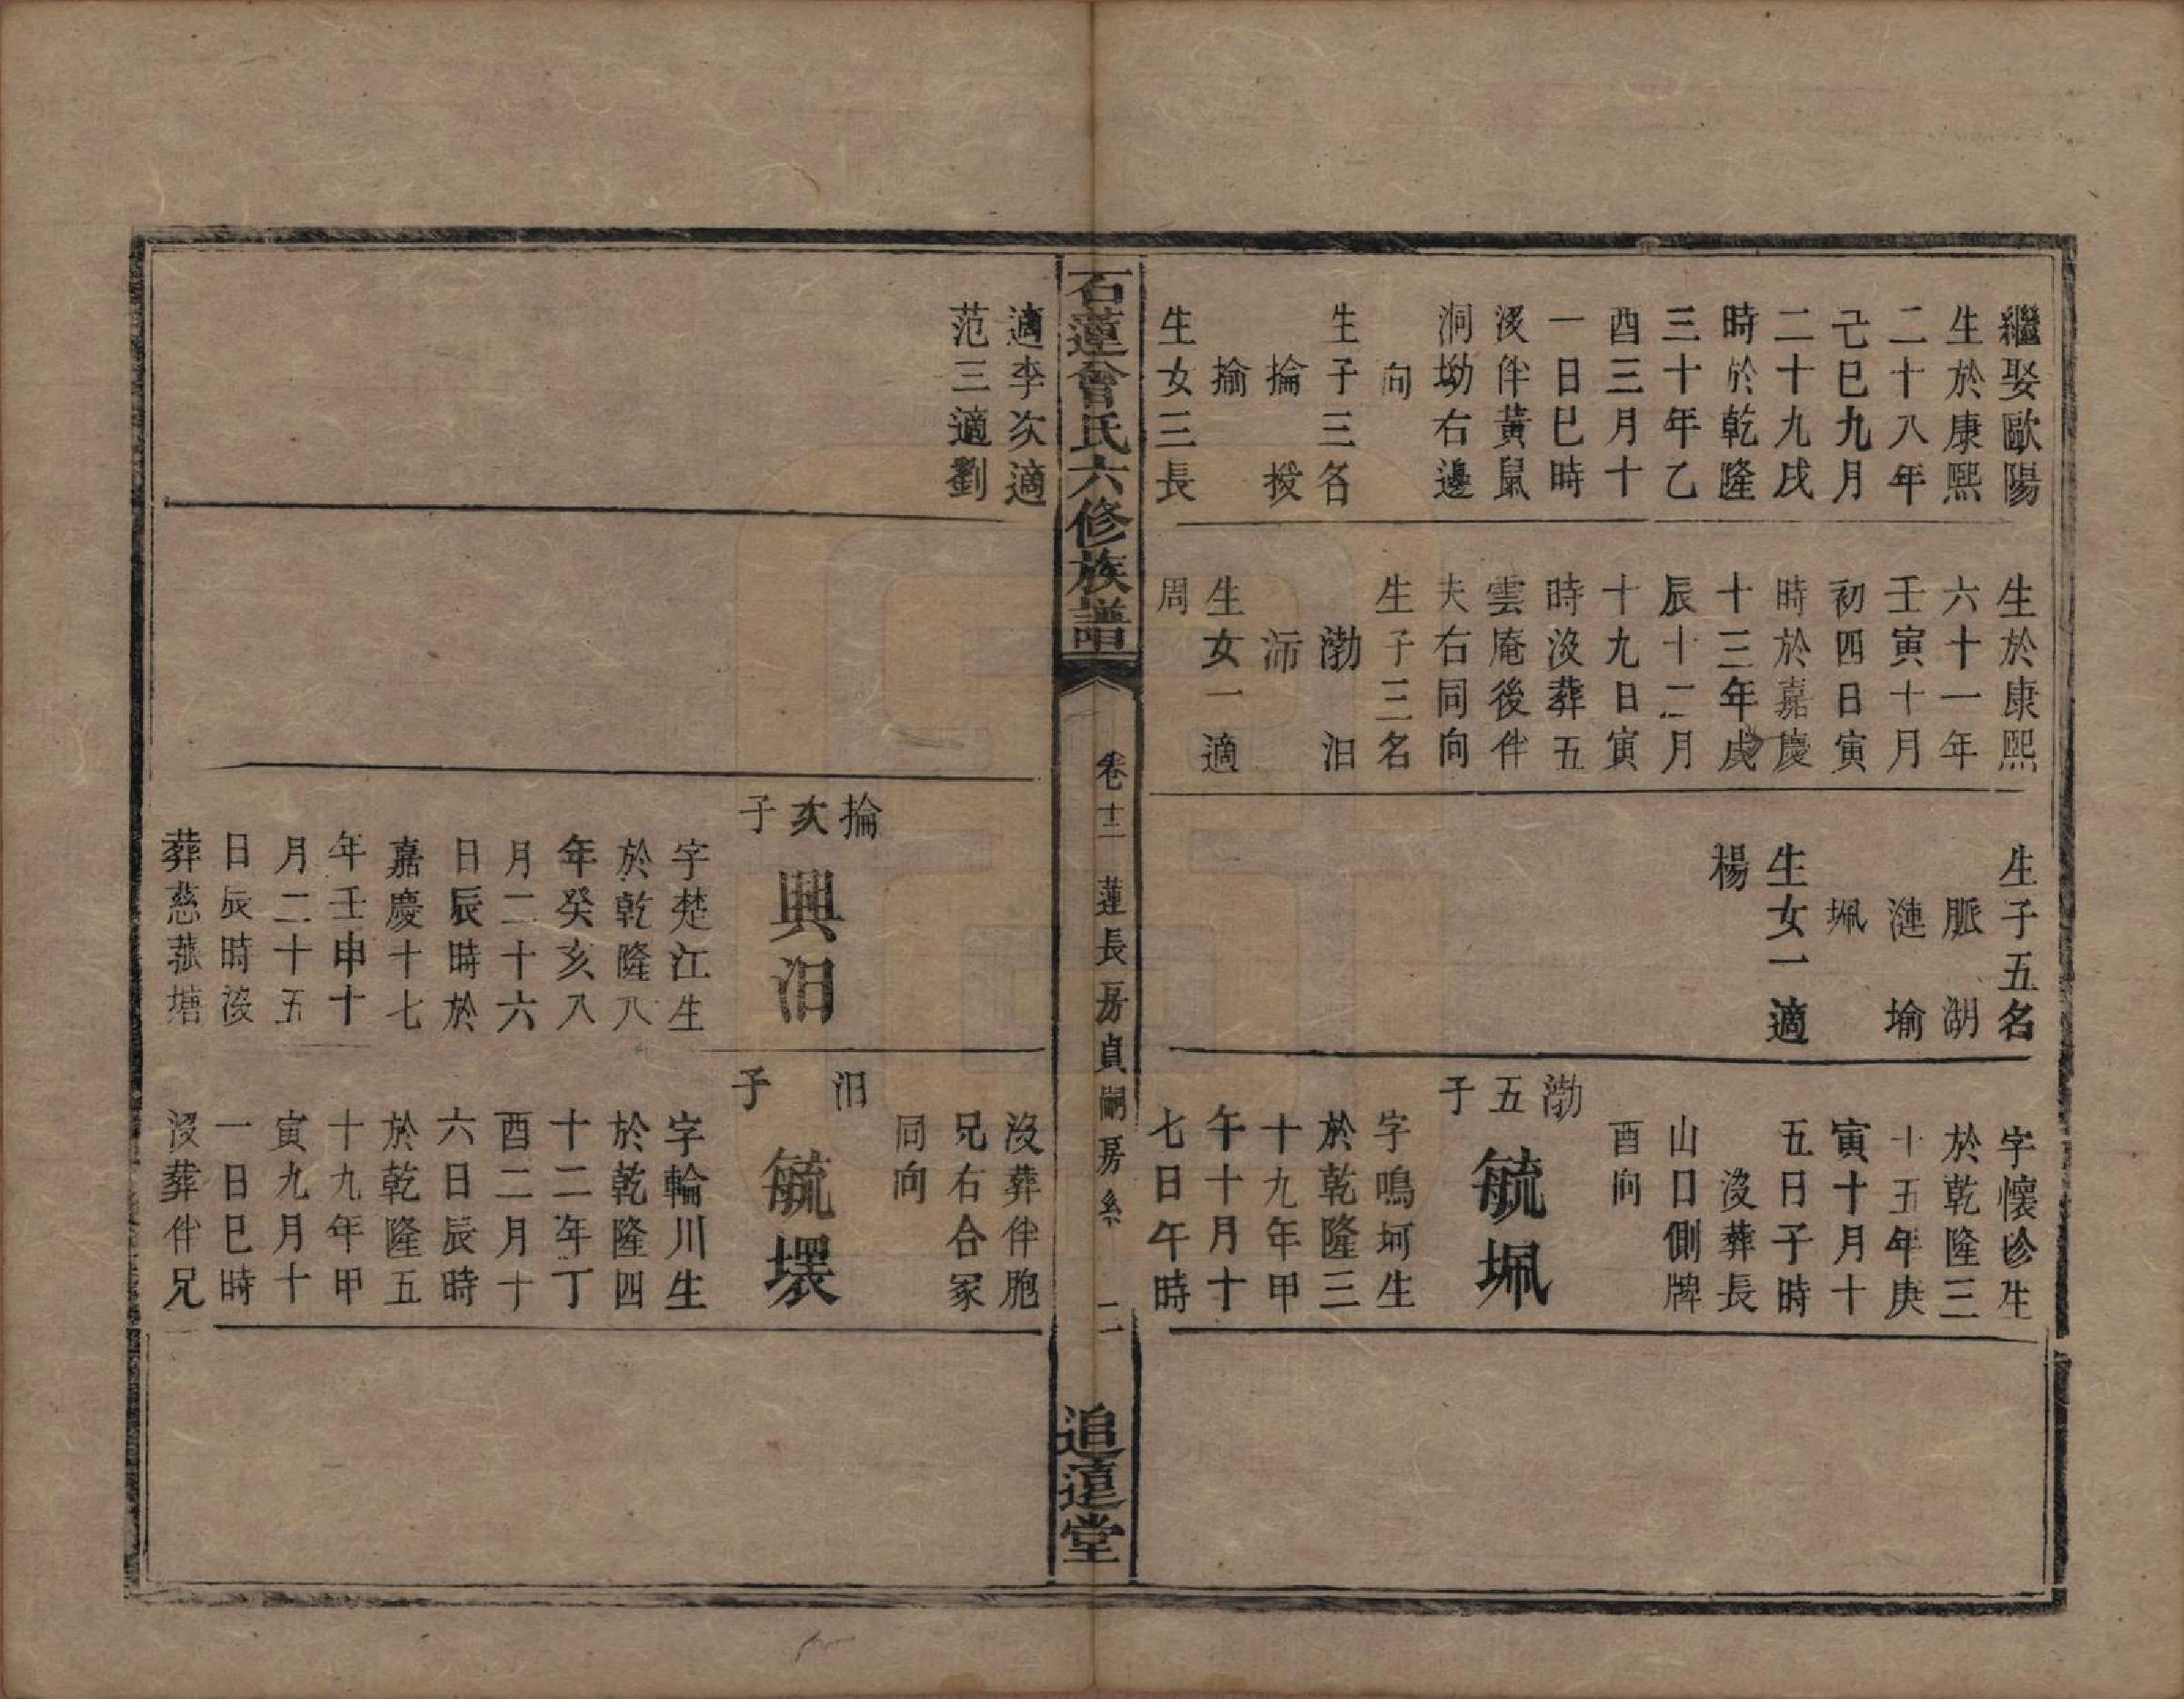 繼娶歐陽
生於康熙
二十八年
己巳九月
二十九戌
時於乾隆
三十年乙
酉三月十
一日巳時
沒伴黃鼠
洞坳右邊
向
生子三名
掄 㧞
揄
生女三長
生於康熙
六十一年
壬寅十月
初四日寅
時於嘉慶
十三年戊
辰十二月
十九日寅
時沒葬五
雲庵後伴
夫右同向
生子三名
渤 汨
沛
生女一適
周
生子五名
脈 湖
漣 堬
珮
生女一適
楊
字懷珍生
於乾隆三
十五年庚
寅十月十
五日子時
沒葬長
山口側牌
酉向
渤五子
毓珮
字鳴珂生
於乾隆三
十九年甲
午十月十
七日午時
石蓮曾氏六修族譜
卷十二 蓮長房貞嗣房系 二
追遠堂
適李次適
范三適劉
掄次子
興汨
字楚江生
於乾隆八
年癸亥八
月二十六
日辰時於
嘉慶十七
年壬申十
月二十五
日辰時沒
葬慈菰塘
沒葬伴胞
兄右合冢
同向
汨子
毓堁
字輪川生
於乾隆四
十二年丁
酉二月十
六日辰時
於乾隆五
十九年甲
寅九月十
一日巳時
沒葬伴兄